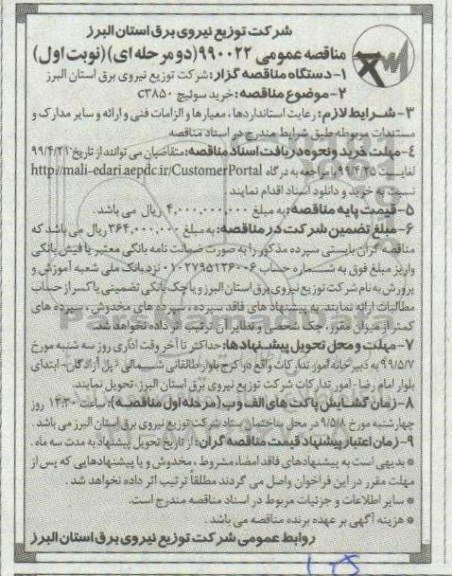 شرکت توزیع نیروی برق استان البرز
مناقصه عمومی ۹۹۰۰۲۲ (دو مرحله ای) (نوبت اول)
۱- دستگاه مناقصه گزار: شرکت توزیع نیروی برق استان البرز
۲- موضوع مناقصه: خرید سوئیچ C۳۸۵۰
۳- شرایط لازم: رعایت استانداردها، معیارها و الزامات فنی و ارائه و سایر مدارک و
مستندات مربوطه طبق شرایط مندرج در اسناد مناقصه
۴- مهلت خرید و نحوه دریافت اسناد مناقصه: متقاضیان می توانند از تاریخ ۹۹/۴/۲۱
لغایت ۹۹/۴/۲۵ با مراجعه به درگاه http://mali-edari.aepdc.ir/CustomerPortal
نسبت به خرید و دانلود اسناد اقدام نمایند
۵- قیمت پایه مناقصه: به مبلغ ۴,۰۰۰,۰۰۰,۰۰۰ ریال می باشد.
۶- مبلغ تضمین شرکت در مناقصه: به مبلغ ۳۶۴,۰۰۰,۰۰۰ ریال می باشد که
مناقصه گران بایستی سپرده مذکور را به صورت ضمانت نامه بانکی معتبر یا فیش بانکی
واریز مبلغ فوق به شماره حساب ۰۱۰۲۷۹۵۱۳۶۰۰۶ نزد بانک ملی شعبه آموزش و
پرورش به نام شرکت توزیع نیروی برق استان البرز و یا چک بانکی تضمینی یا کسر از حساب
مطالبات ارائه نمایند. به پیشنهاد های فاقد سپرده، سپرده های مخدوش، سپرده های
کمتر از میزان مقرر، چک شخصی و نظایر آن ترتیب اثر داده نخواهد شد.
۷- مهلت و محل تحویل پیشنهادها: حداکثر تا آخر وقت اداری روز سه شنبه مورخ
۹۹/۵/۷ به دبیرخانه امور تدارکات واقع در کرج بلوار طالقانی شمالی - پل آزادگان - ابتدای
بلوار امام رضا - امور تدارکات شرکت توزیع نیروی برق استان البرز، تحویل نمایند.
۸- زمان گشایش پاکت های الف و ب (مرحله اول مناقصه): ساعت ۱۳:۳۰ روز
چهارشنبه مورخ ۹۹/۵/۸ در محل ساختمان ستاد شرکت توزیع نیروی برق استان البرز می باشد.
۹- زمان اعتبار پیشنهاد قیمت مناقصه گران: از تاریخ تحویل پیشنهاد به مدت سه ماه.
* بدیهی است به پیشنهادهای فاقد امضاء، مشروط، مخدوش و یا پیشنهادهایی که پس از
مهلت مقرر در این فراخوان واصل می گردند مطلقاً ترتیب اثر داده نخواهد شد.
* سایر اطلاعات و جزئیات مربوط در اسناد مناقصه مندرج است.
* هزینه آگهی بر عهده برنده مناقصه می باشد.
روابط عمومی شرکت توزیع نیروی برق استان البرز